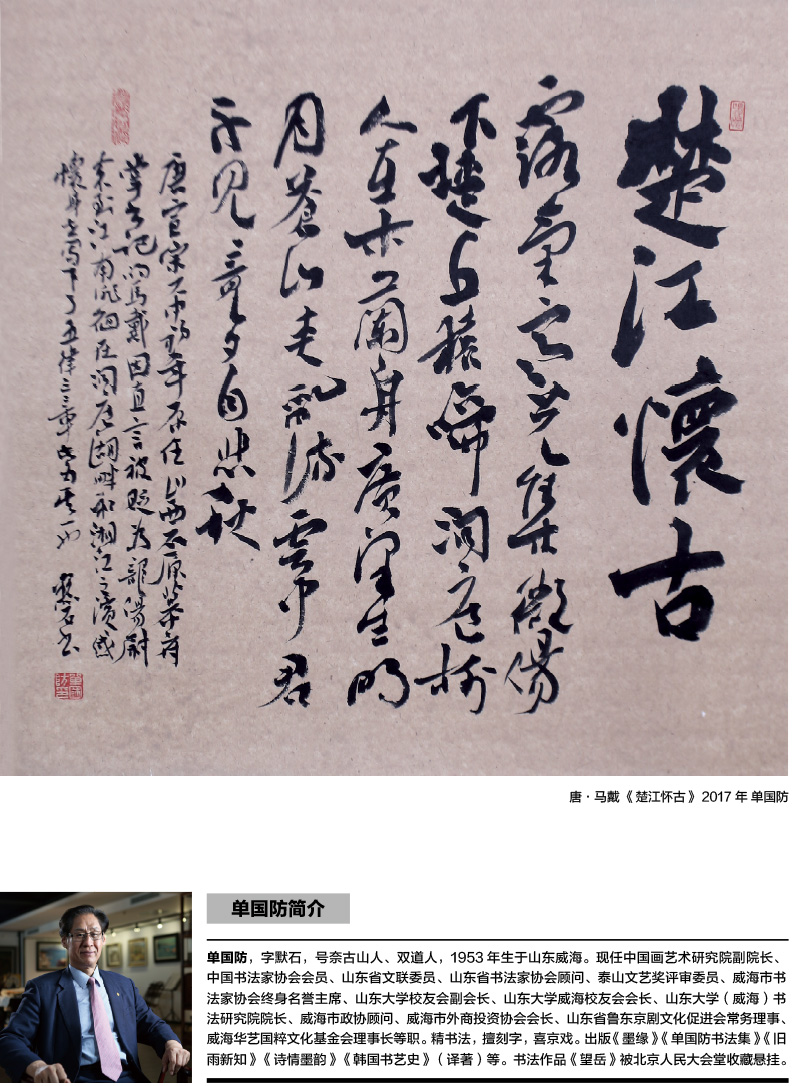 楚江懷古
露氣寒光集微陽
下楚丘猿啼洞庭樹
人在木蘭舟廣澤生明
月蒼山夾亂流雲中君
不見竟夕自悲秋
唐宣宗大中初年原任山西太原幕府
掌書記的馬戴因直言被貶為龍陽尉
來到江南徘徊在洞庭湖畔和湘江之濱感
懷身世寫下了五律三章此為其一 默石書
單國防印
唐·马戴《楚江怀古》2017 年 单国防
单国防简介
单国防，字默石，号奈古山人、双道人，1953 年生于山东威海。现任中国画艺术研究院副院长、
中国书法家协会会员、山东省文联委员、山东省书法家协会顾问、泰山文艺奖评审委员、威海市书
法家协会终身名誉主席、山东大学校友会副会长、山东大学威海校友会会长、山东大学（威海）书
法研究院院长、威海市政协顾问、威海市外商投资协会会长、山东省鲁东京剧文化促进会常务理事、
威海华艺国粹文化基金会理事长等职。精书法，擅刻字，喜京戏。出版《墨缘》《单国防书法集》《旧
雨新知》《诗情墨韵》《韩国书艺史》（译著）等。书法作品《望岳》被北京人民大会堂收藏悬挂。